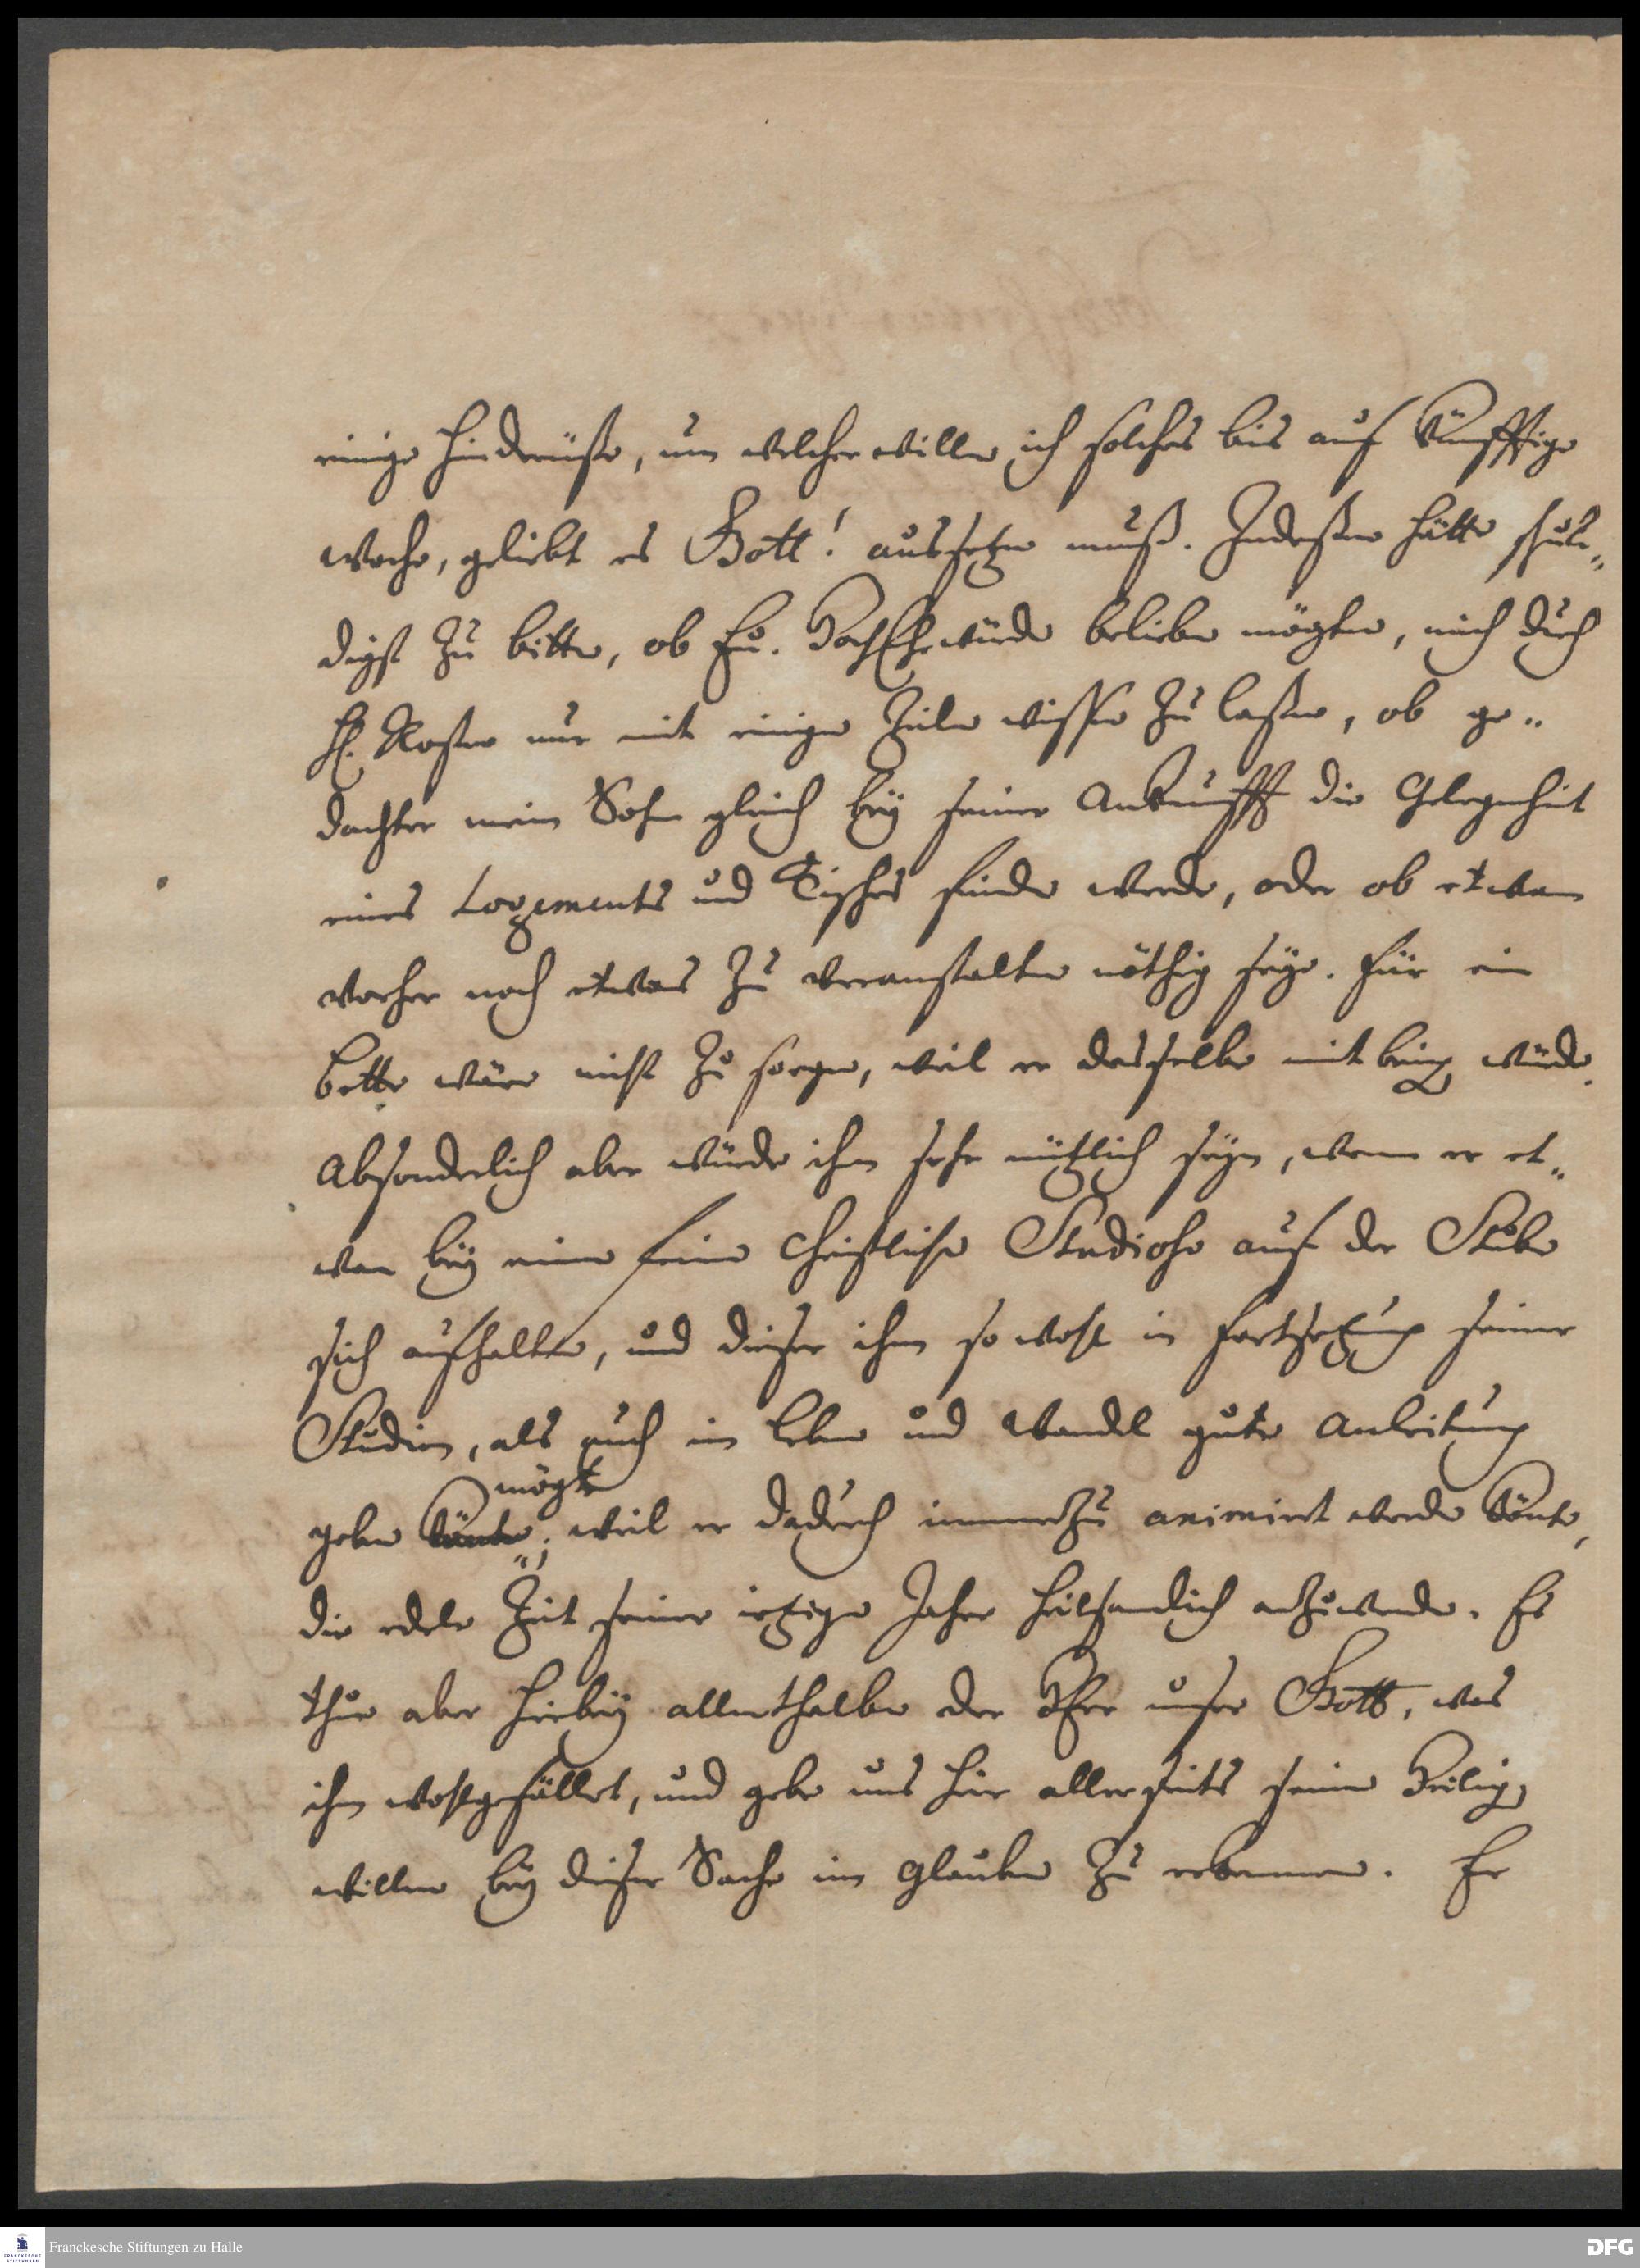 einige Hindernüße, um welcher willen ich solches bis auf künfftige
woche, geliebt es Gott! aussetzen muß. Indeßen hätte schul„
digst zu bitten, ob Eu. HochEhrwürde belieben mögten, mich durch
H. Kosten nur mit einigen Zeilen wissen zu laßen, ob ge„
dachter mein Sohn gleich bey seiner Ankunfft die Gelegenheit
eines Logements und Tisches finden werde, oder ob etwan
vorher noch etwas zu veranstalten nöthig seye. Für ein
bette wäre nicht zu sorgen, weil er dasselbe mit bring würde.
Absonderlich aber würde ihm sehr nützlich seyn, wenn er et„
wan bey einem feinen christlichen Studioso auf der Stube
sich aufhalten, und dieser ihm so wohl in fortsetzung seiner
Studien, als auch im Leben und Wandel gute Anleitung
mögte
geben könte; weil er dadurch immerzu animirt werden könte,
die edele Zeit seiner ietzigen Jahre heilsamlich anzuwenden. Es
thue aber hierbey allenthalben der HErr unser Gott, was
ihm wohlgefället, und gebe uns hier allerseits seinen Heilig
willen bey dieser Sache im Glauben zu erkennen. Er
Franckesche Stiftungen zu Halle
DFG
FRANCKESCHE STIFTUNGEN